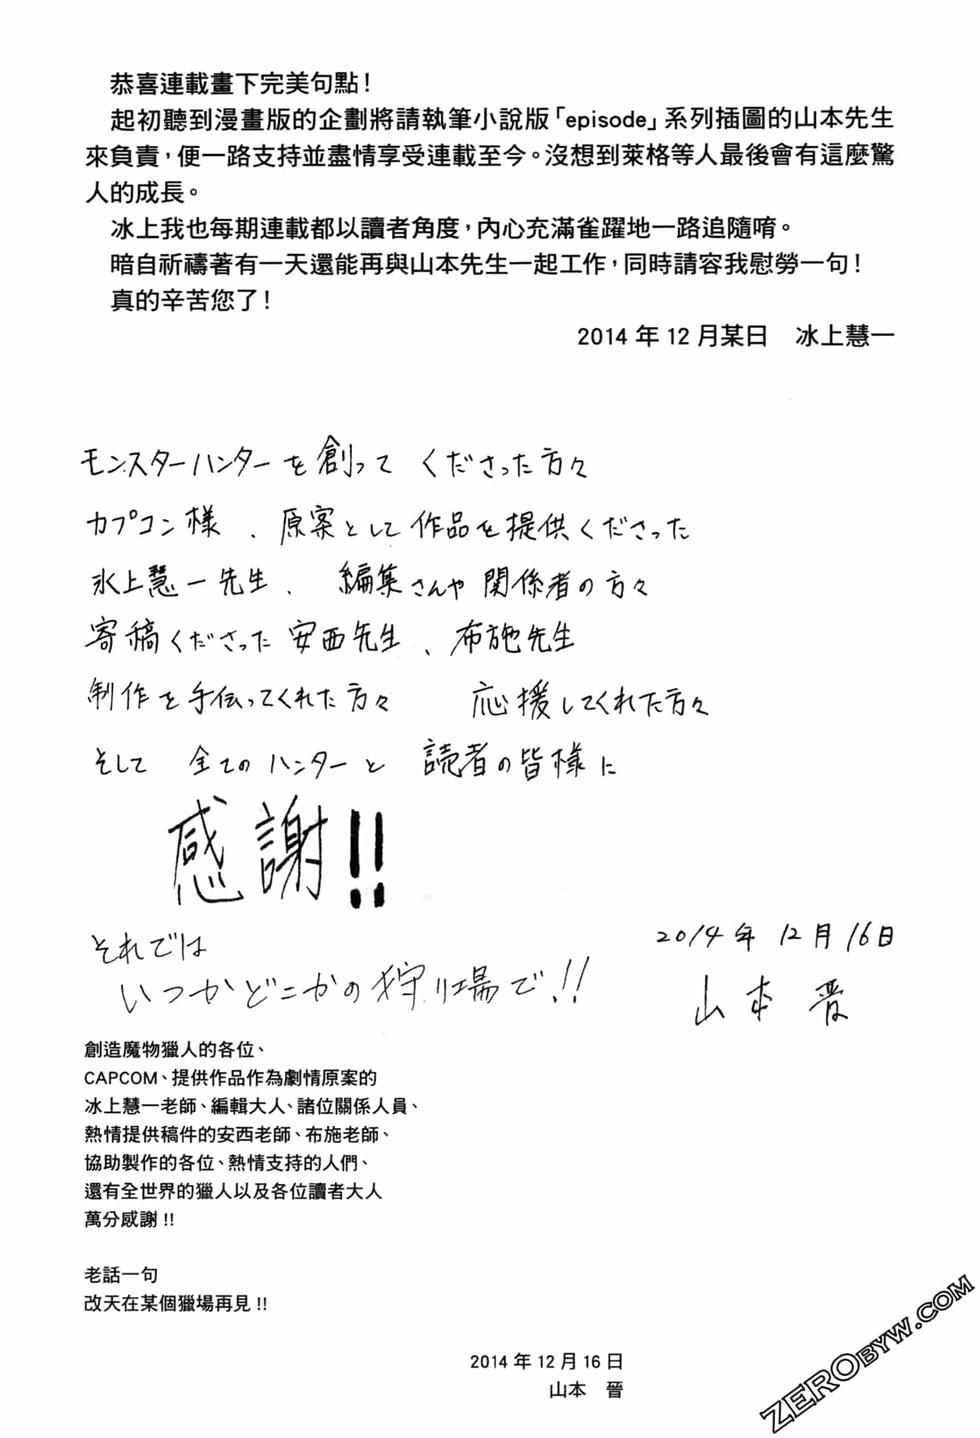 恭喜連載畫下完美句點！
起初聽到漫畫版的企劃將請執筆小說版「episode」系列插圖的山本先生
來負責，便一路支持並盡情享受連載至今。沒想到萊格等人最後會有這麼驚
人的成長。
冰上我也每期連載都以讀者角度，內心充滿雀躍地一路追隨唷。
暗自祈禱著有一天還能再與山本先生一起工作，同時請容我慰勞一句！
真的辛苦您了！
2014 年 12 月某日　冰上慧一
モンスターハンターを創って くださった方々
カプコン様、原案として作品を提供くださった
氷上慧一先生、 編集さんや関係者の方々
寄稿くださった 安西先生、布施先生
制作を手伝ってくれた方々 応援してくれた方々
そして 全てのハンターと 読者の皆様に
感謝!!
それでは
いつかどこかの狩り場で!!
2014年 12月16日
山本 晋
創造魔物獵人的各位、
CAPCOM、提供作品作為劇情原案的
冰上慧一老師、編輯大人、諸位關係人員、
熱情提供稿件的安西老師、布施老師、
協助製作的各位、熱情支持的人們、
還有全世界的獵人以及各位讀者大人
萬分感謝!!
老話一句
改天在某個獵場再見!!
2014 年 12 月 16 日
山本　晉
ZEROBYW.COM